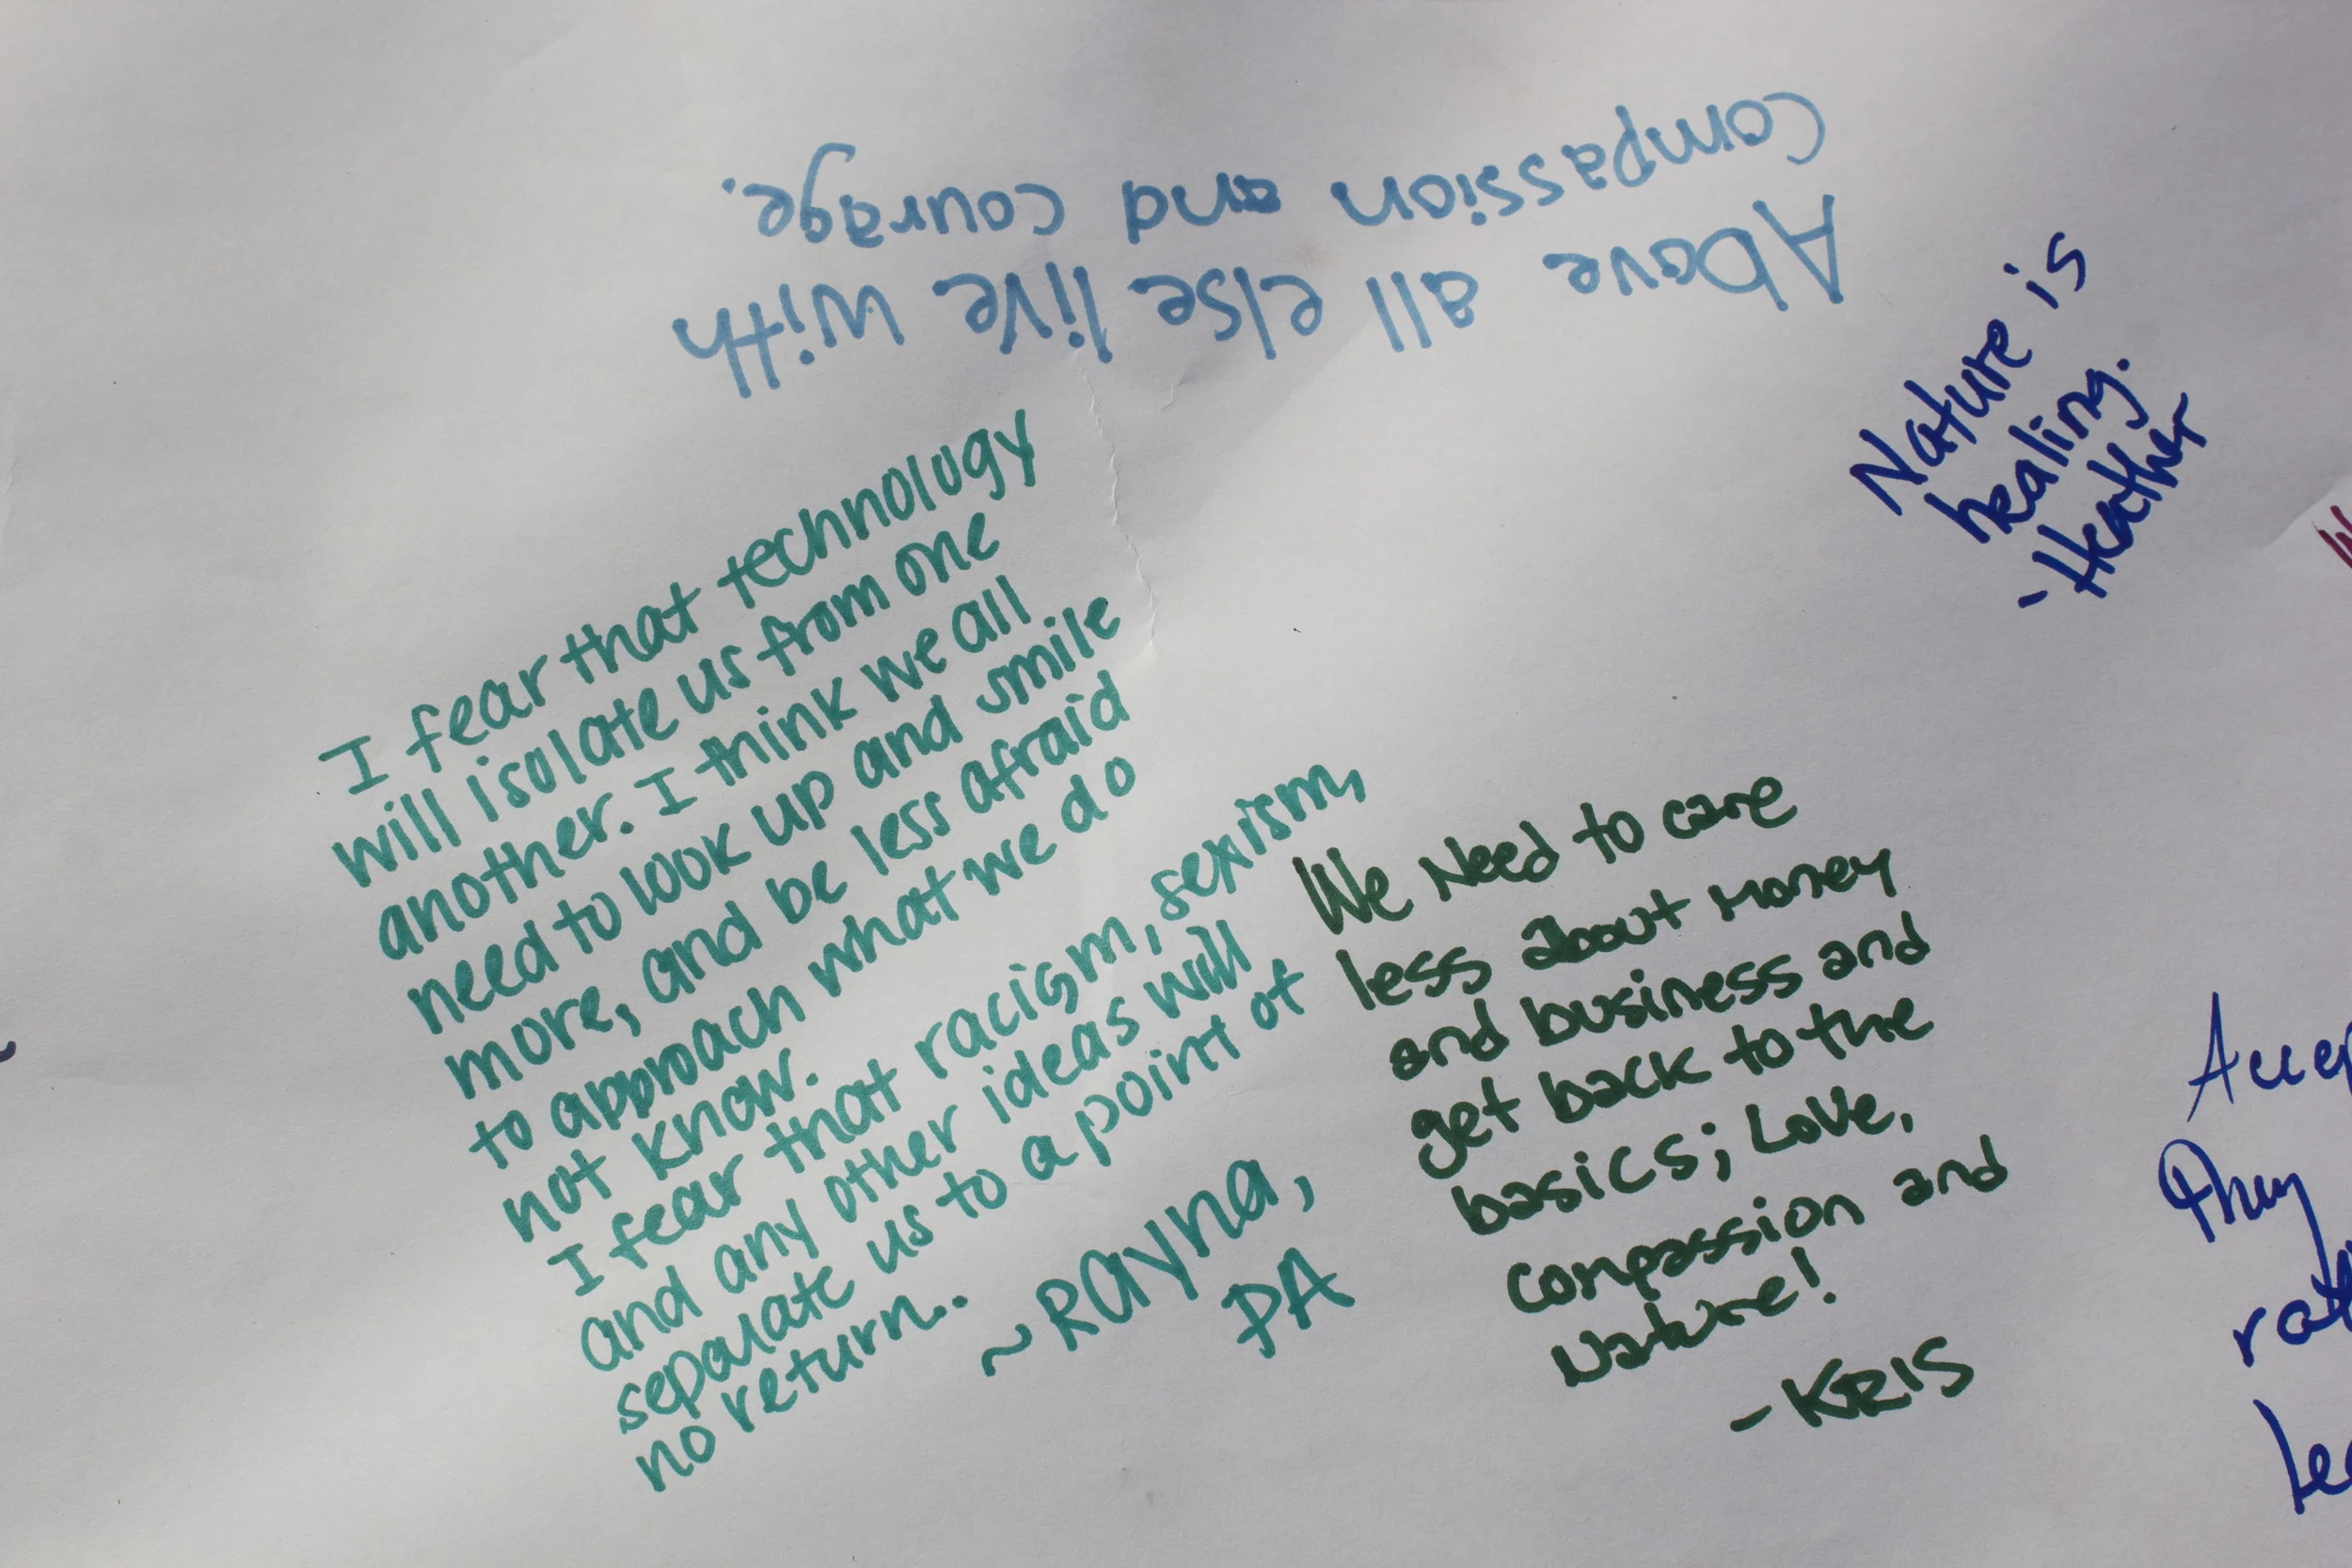 Above all else live with
compassion and courage.
Nature is
healing.
- Heather
I fear that technology
will isolate us from one
another. I think we all
need to look up and smile
more, and be less afraid
to approach what we do
not know.
I fear that racism, sexism,
and any other ideas will
separate us to a point of
no return..
~ Rayna,
PA
We Need to care
less about money
and business and
get back to the
basics; Love,
compassion and
Nature!
- KRIS
They